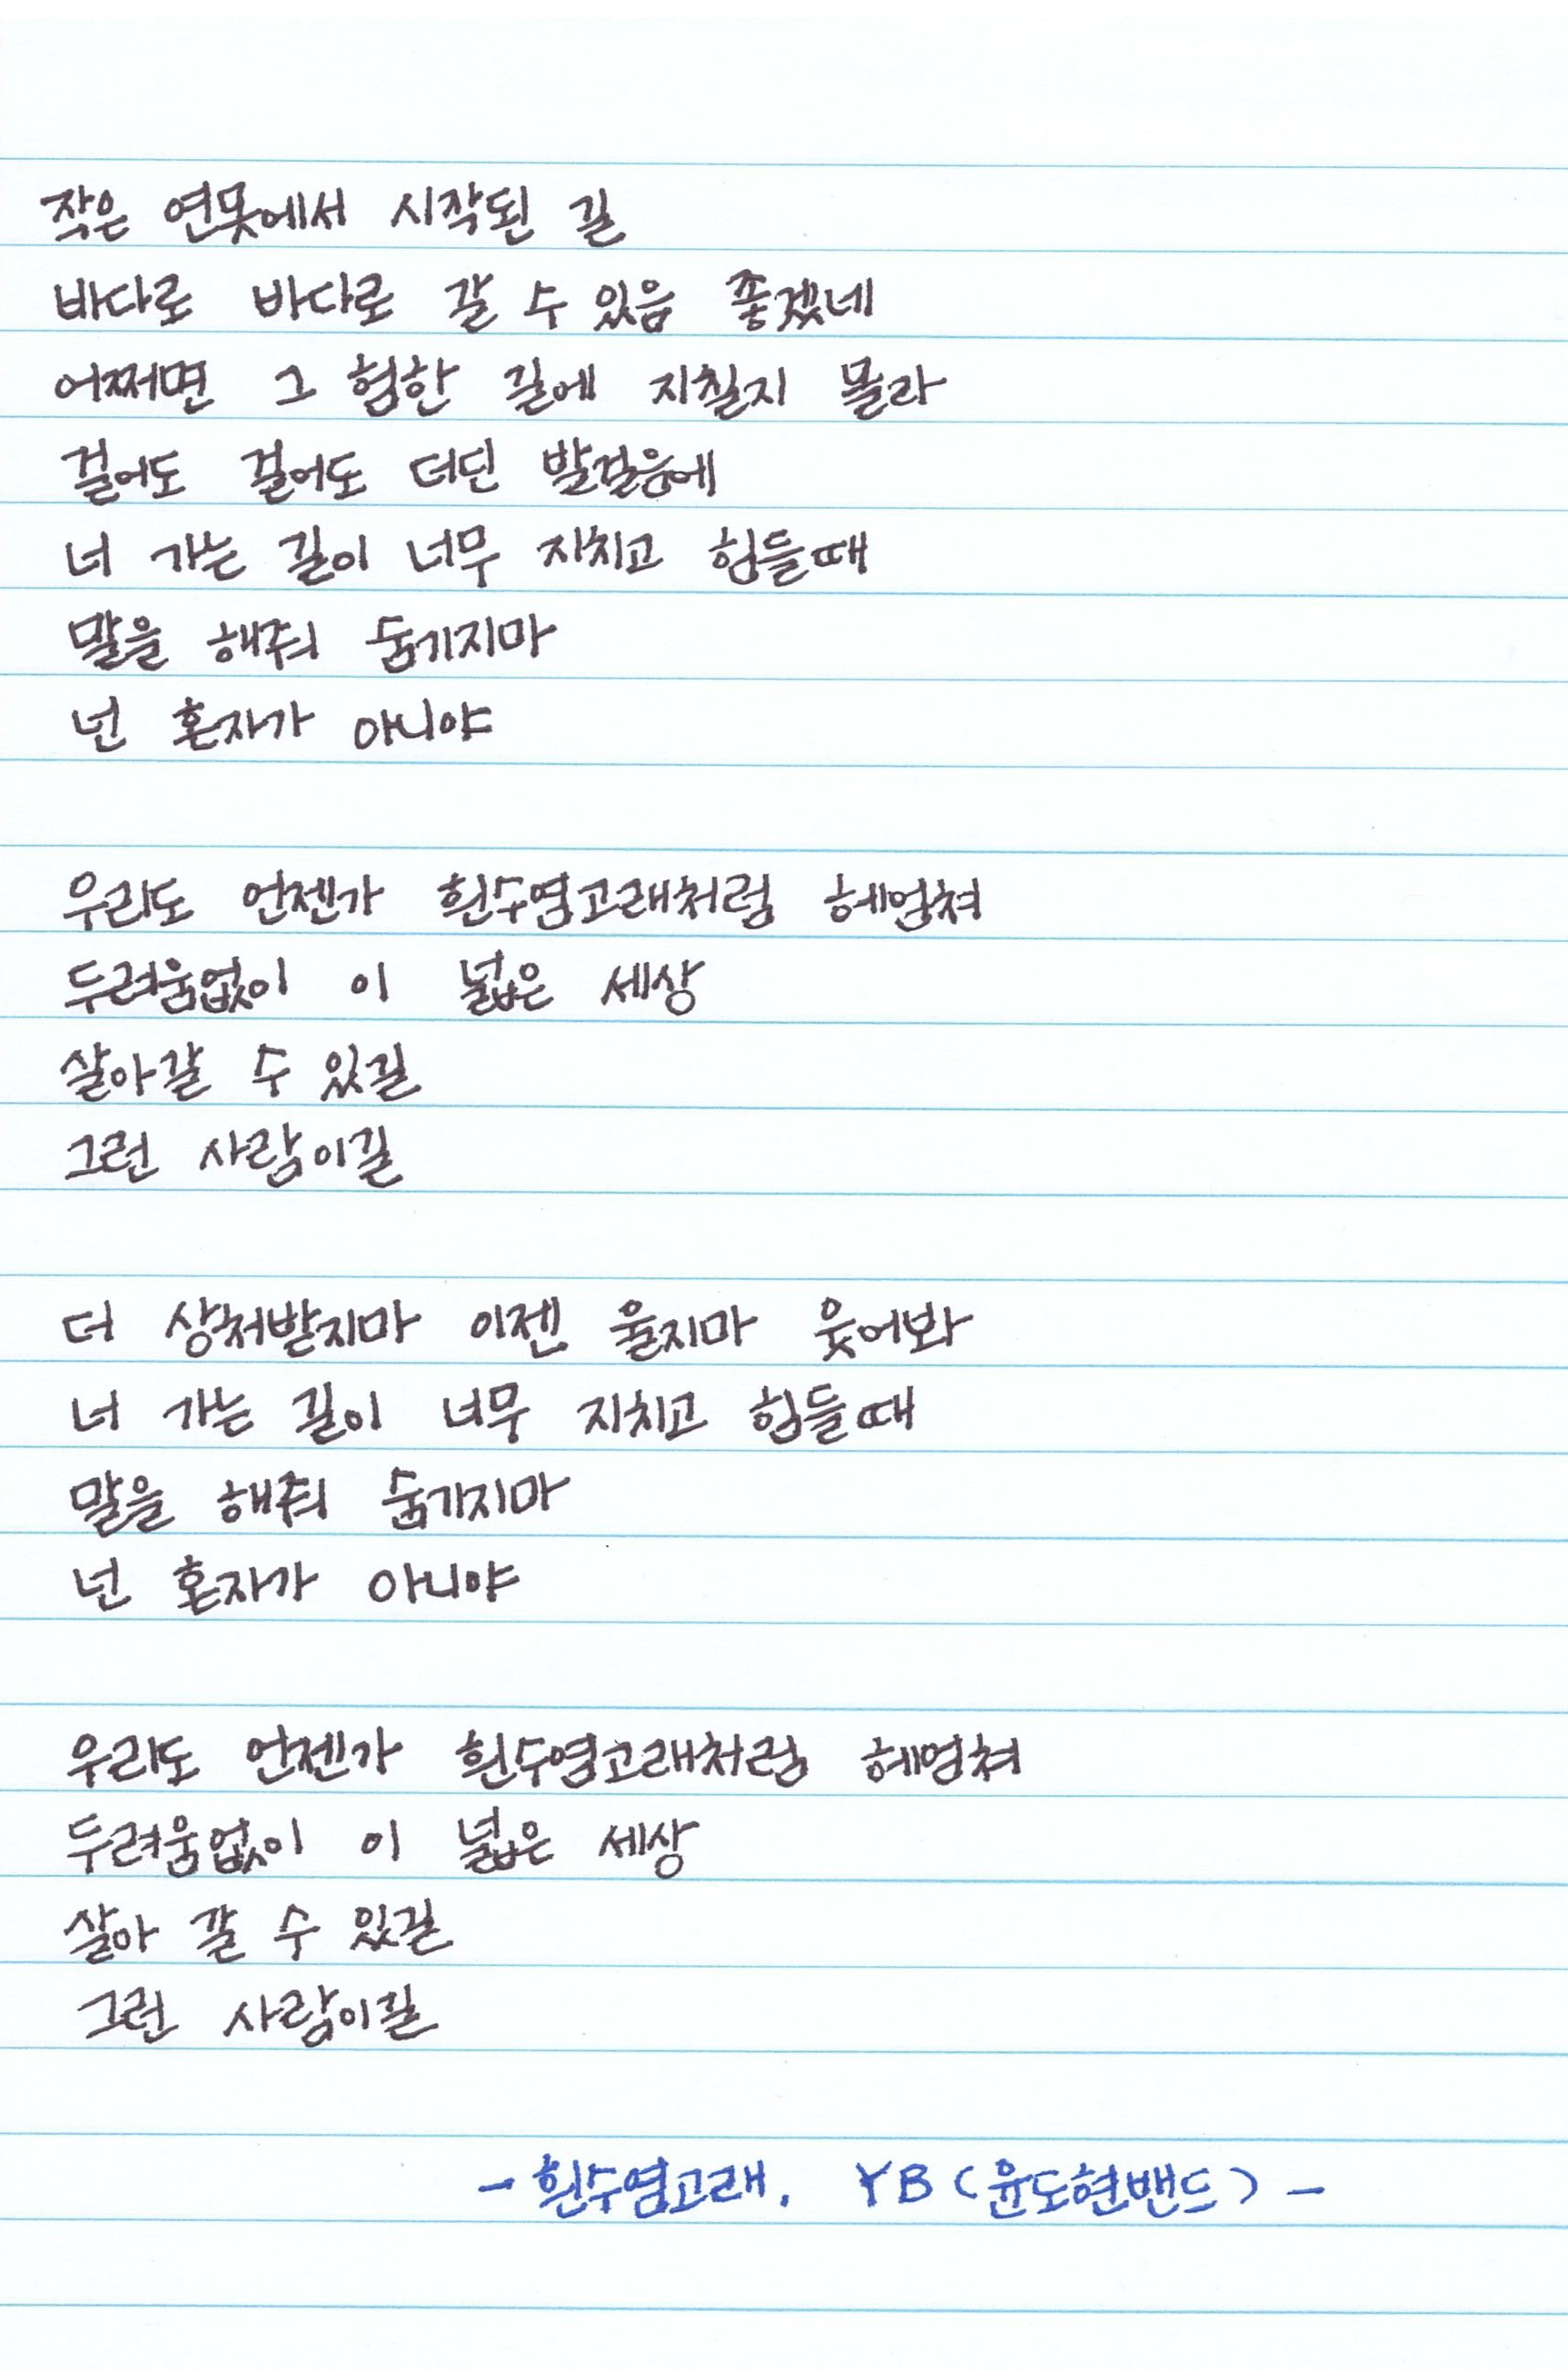 작은 연못에서 시작된 길
바다로 바다로 갈 수 있음 좋겠네
어쩌면 그 험한 길에 지칠지 몰라
걸어도 걸어도 더딘 발걸음에
너 가는 길이 너무 지치고 힘들때
말을 해줘 숨기지마
넌 혼자가 아니야
우리도 언젠가 흰수염고래처럼 헤엄쳐
두려움없이 이 넓은 세상
살아갈 수 있길
그런 사람이길
더 상처받지마 이젠 울지마 웃어봐
너 가는 길이 너무 지치고 힘들때
말을 해줘 숨기지마
넌 혼자가 아니야
우리도 언젠가 흰수염고래처럼 헤엄쳐
두려움없이 이 넓은 세상
살아 갈 수 있길
그런 사람이길
- 흰수염고래. YB (윤도현밴드) -